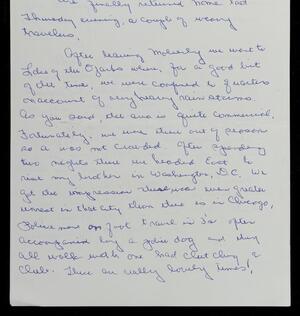 We finally returned home last
Thursday evening, a couple of weary
travelers.
After leaving Moberly we went to
Lake of the Ozarks where, for a good bit
of the time, we were confined to quarters
on account of very heavy rain storms.
As you said, the area is quite commercial.
Fortunately, we were there out of season
so it was not crowded. After spending
two nights there we headed East to
visit my brother in Washington, D.C. We
got the impression there was even greater
unrest in that city than there is in Chicago,
Policemen on foot travel in 3's often
accompanied by a police dog and they
all walk with one hand clutching a
club. These are really lovely times!